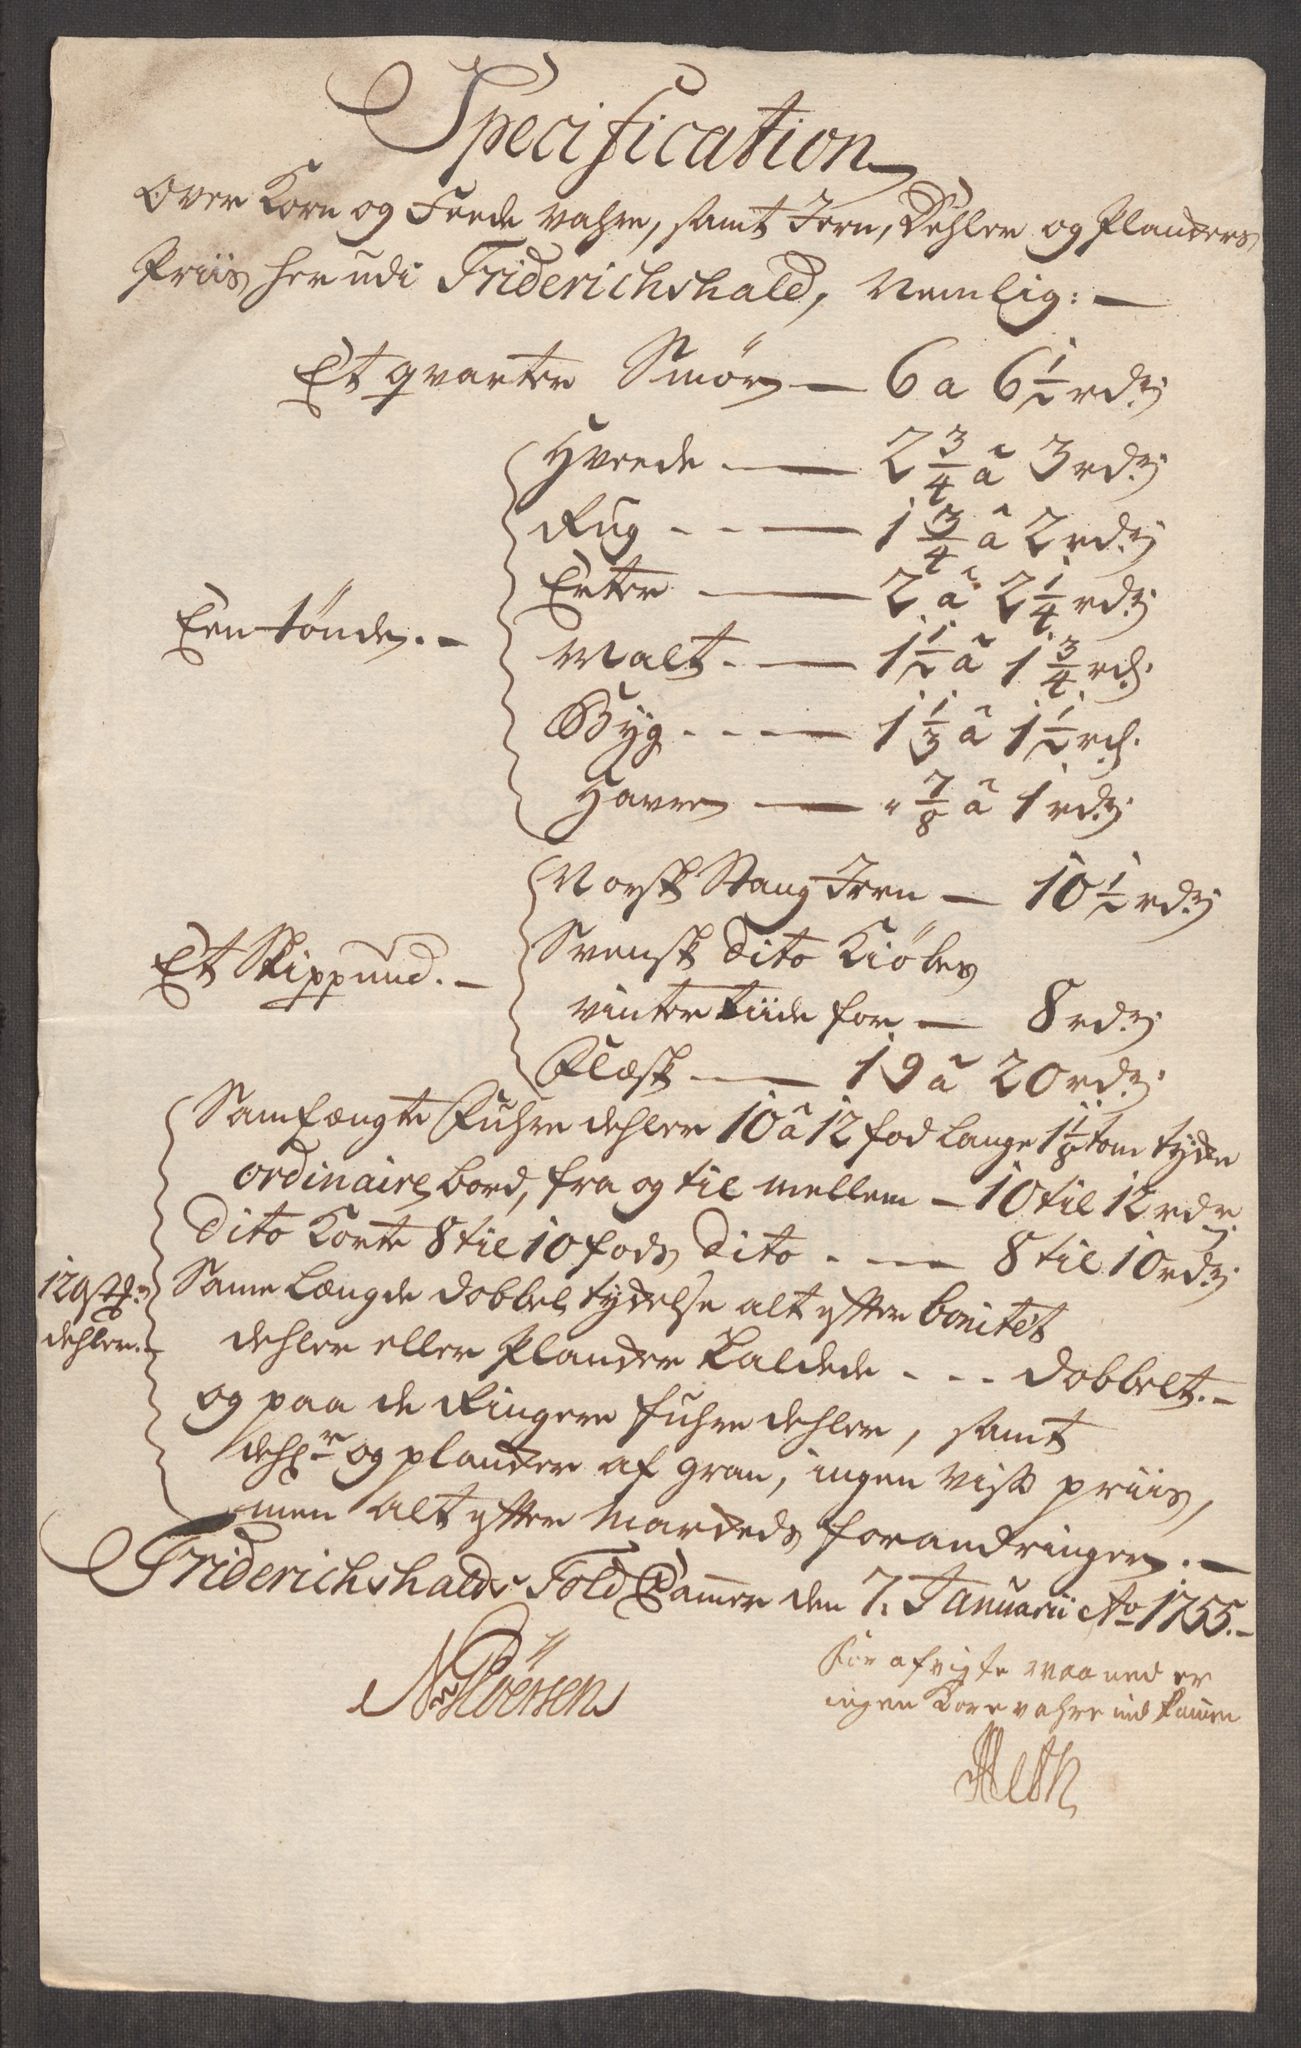 Specification
Over Korn og Feede vahre, samt Jern, Dehler og Planckers
Priis her udi Friderichshald, Nemlig: —
Et qvarter Smør — 6 a 6 1/2 rdr
Hveede — 2 3/4 â 3 rdr
Rug - - — 1 3/4 â 2 rdr
Erter — 2 â 2 1/4 rdr
Een tönde. —
Malt. — 1 1/2 â 1 3/4 rd.
Byg - - - — 1 1/3 â 1 1/2 rd.
Havre — " 7/8 â 1 rdr
Norsk Stang Jern — 10 1/2 rdr
Et Skippund. —
Svensk dito Kiöbes
vinter tiide for — 8 rdr
Flæsk — 19 â 20 rdr
Samfængte Fuhre dehler 10 â 12 fod lange 1 1/8 tom tycke
ordinaire bord, fra og til mellem — 10 til 12 rdr
Dito Korte 8 til 10 fods dito - — 8 til 10 rdr
12 dehler. —
Same Længde dobbel tyckelse alt efter bonitet
dehler eller Plancker kaldede - - - dobbelt. —
og paa de Ringere fuhre dehler, samt
dehlr og plancker af gran, ingen viss priis,
men alt efter Marckeds forandringer. —
Friderichshalds Told Cammer den 7. Januarii Ao 1755. —
For afvigte Maaned er
ingen Korn vahre ind kommen